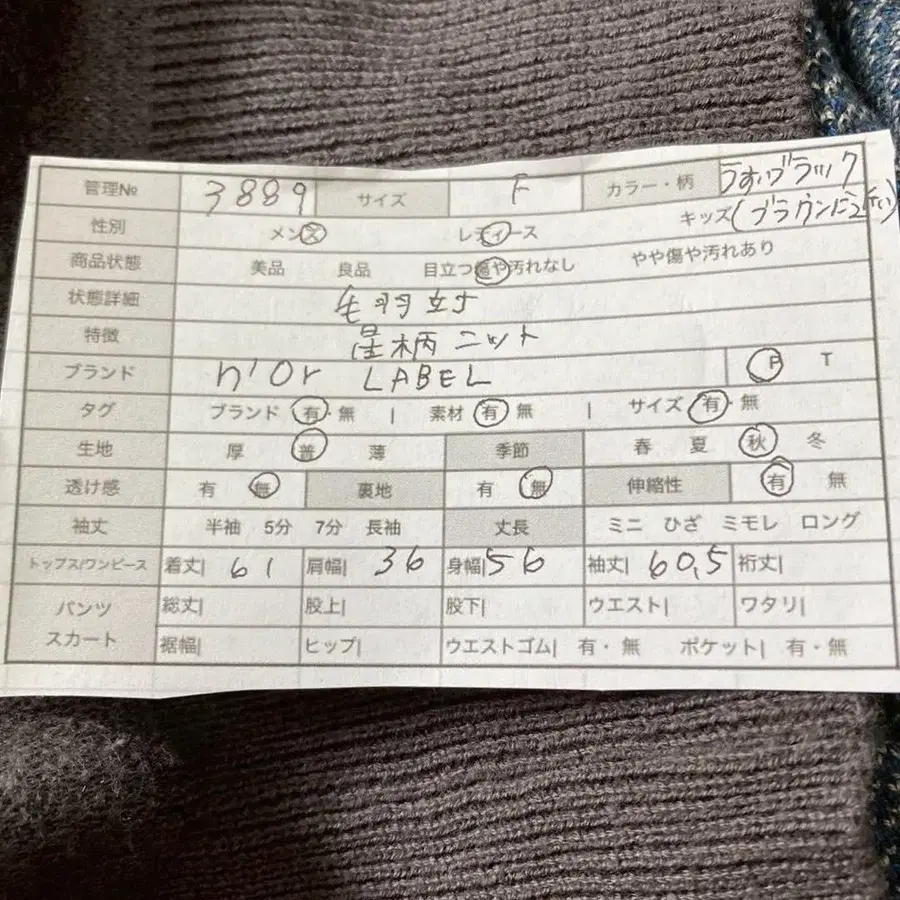 管理№ 3889 サイズ F カラー・柄 うすいブラック
性別 メンズ レディース キッズ (ブラウンに近い)
商品状態 美品 良品 目立つ傷や汚れなし やや傷や汚れあり
状態詳細 毛羽立ち
特徴 星柄ニット
ブランド n'Or LABEL P T
タグ ブランド 有・無 | 素材 有・無 | サイズ 有・無
生地 厚 普 薄 季節 春 夏 秋 冬
透け感 有 無 裏地 有 無 伸縮性 有 無
袖丈 半袖 5分 7分 長袖 丈長 ミニ ひざ ミモレ ロング
トップス/ワンピース 着丈| 61 肩幅| 36 身幅| 56 袖丈| 60,5 裄丈|
パンツ スカート 総丈| 股上| 股下| ウエスト| ワタリ|
裾幅| ヒップ| ウエストゴム| 有・無 ポケット| 有・無